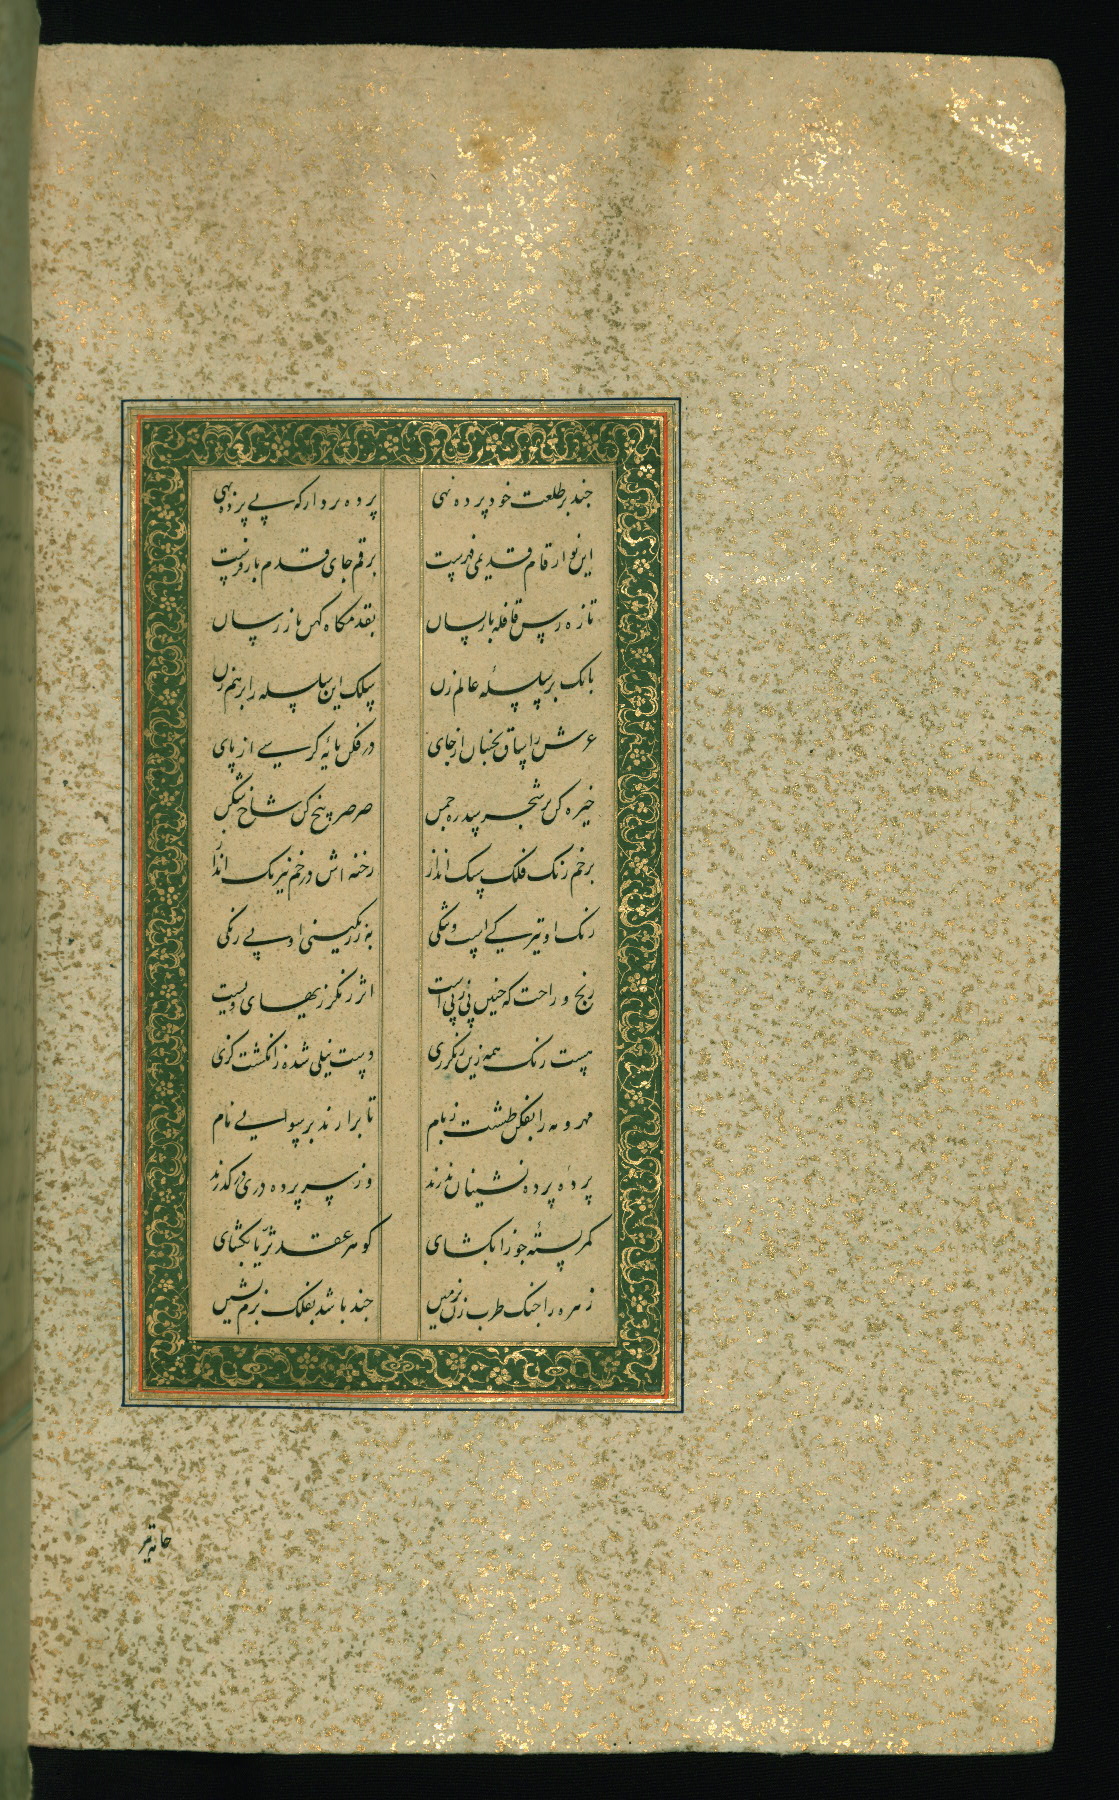 جند بر طلعت خود پرده نهی پرده بردار که بی پرده بهی
این نو ارقام قدیمی فهرست برقم جای قدم بار فرست
تازه رس قافله باز پسان بقدمکاه کهن باز رسان
بانک بر سلسلهٔ عالم زن سلک این سلسله را برهم زن
عرش را ساق بجنبان از جای در فکن پایهٔ کرسی از پای
خیره کن بر شجر سدره جمن صرصر بیخ کن شاخ شکن
بر خم رنک فلک سنک انداز رخنه اش در خم نیرنک انداز
رنک او تیرکی است و تنکی به ز رنکینی او بی رنکی
رنج و راحت که جنین پی در پی است اثر رنکرزیهای ویست
هست رنک همه زین رنکرزی دست نیلی شده ز انکشت کزی
مهر و مه را بفکن طشت ز بام تا برارند برسوایی نام
پردهٔ پرده نشینان ندرند وز سر پرده دری در کذرند
کمر بستهٔ جوزا بکشای کوهر عقد ثریا بکشای
زهره را جنک طرب زن بزمین جند باشد بفلک بزم نشین
خامه تیر